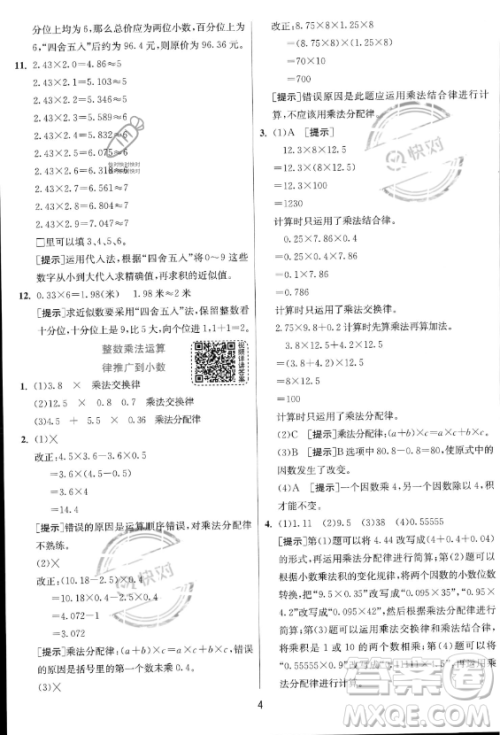 分位上均为 6，那么总价应为两位小数，百分位上为
6，“四舍五入”后约为 96.4 元，则原价为 96.36 元。
11. 2.43×2.0=4.86≈5
2.43×2.1=5.103≈5
2.43×2.2=5.346≈5
2.43×2.3=5.589≈6
2.43×2.4=5.832≈6
2.43×2.5=6.075≈6
2.43×2.6=6.318≈6
2.43×2.7=6.561≈7
2.43×2.8=6.804≈7
2.43×2.9=7.047≈7
□里可以填 3、4、5、6。
[提示]运用代入法，根据“四舍五入”法，将 0～9 这些
数字从小到大代入求精确值，再求积的近似值。
12. 0.33×6=1.98(米) 1.98 米≈2 米
[提示]求近似数要采用“四舍五入”法，保留整数看
十分位，十分位上是 9，比 5 大，向个位进 1，1+1=2。
整数乘法运算
律推广到小数
视频讲透答案
1. (1)3.8 × 乘法交换律
(2)12.5 0.8 0.4 乘法结合律
(3)4.5 + 5.5 × 0.36 乘法分配律
2. (1)✕
改正：4.5×3.6-3.6×0.5
=3.6×(4.5-0.5)
=3.6×4
=14.4
[提示]错误的原因是运算顺序错误，对乘法分配律
不熟练。
(2)✕
改正：(10.18-2.5)×0.4
=10.18×0.4-2.5×0.4
=4.072-1
=3.072
[提示]乘法分配律：(a+b)×c=a×c+b×c。错误
的原因是括号里的第一个数未乘 0.4。
(3)✕
改正：8.75×8×1.25×8
=(8.75×8)×(1.25×8)
=70×10
=700
[提示]错误原因是此题应运用乘法结合律进行计
算，不应该用乘法分配律。
3. (1)A [提示]
12.3×8×12.5
=12.3×(8×12.5)
=12.3×100
=1230
计算时只运用了乘法结合律。
0.25×7.8×0.4
=0.25×0.4×7.8
=0.1×7.8
=0.78
计算时只运用了乘法交换律。
2.75×9.8+0.2 计算时先算乘法再算加法。
3.8×12.5+4.2×12.5
=(3.8+4.2)×12.5
=8×12.5
=100
计算时只运用了乘法分配律。
(2)C [提示]乘法分配律：(a+b)×c=a×c+b×c。
(3)B [提示]B 选项中 80.8-0.8=80，使原式中的
因数发生了改变。
(4)A [提示]一个因数乘 4，另一个因数除以 4，积
才能不变。
4. (1)1.11 (2)9.5 (3)38 (4)0.55555
[提示]第(1)题可以将 4.44 改写成(4+0.4+0.04)
的形式，再运用乘法分配律进行简算；第(2)题可以
根据小数乘积的变化规律，将两个因数的小数位数
转换，把“0.095×35”改写成“0.95×3.5”，“0.95×
4.2”改写成“0.095×42”，然后运用乘法分配律进行
简算；第(3)题可以运用乘法交换律和乘法分配律
计算；第(4)题可以运用乘法分配律进行简便计算，
将乘积是 1 或 10 的两个因数相乘，也可以将原式
改写成“0.55555×0.9+0.55555×0.1”，再运用乘
法分配律进行计算。
4
快对
快对
答案圈
MXQE.COM